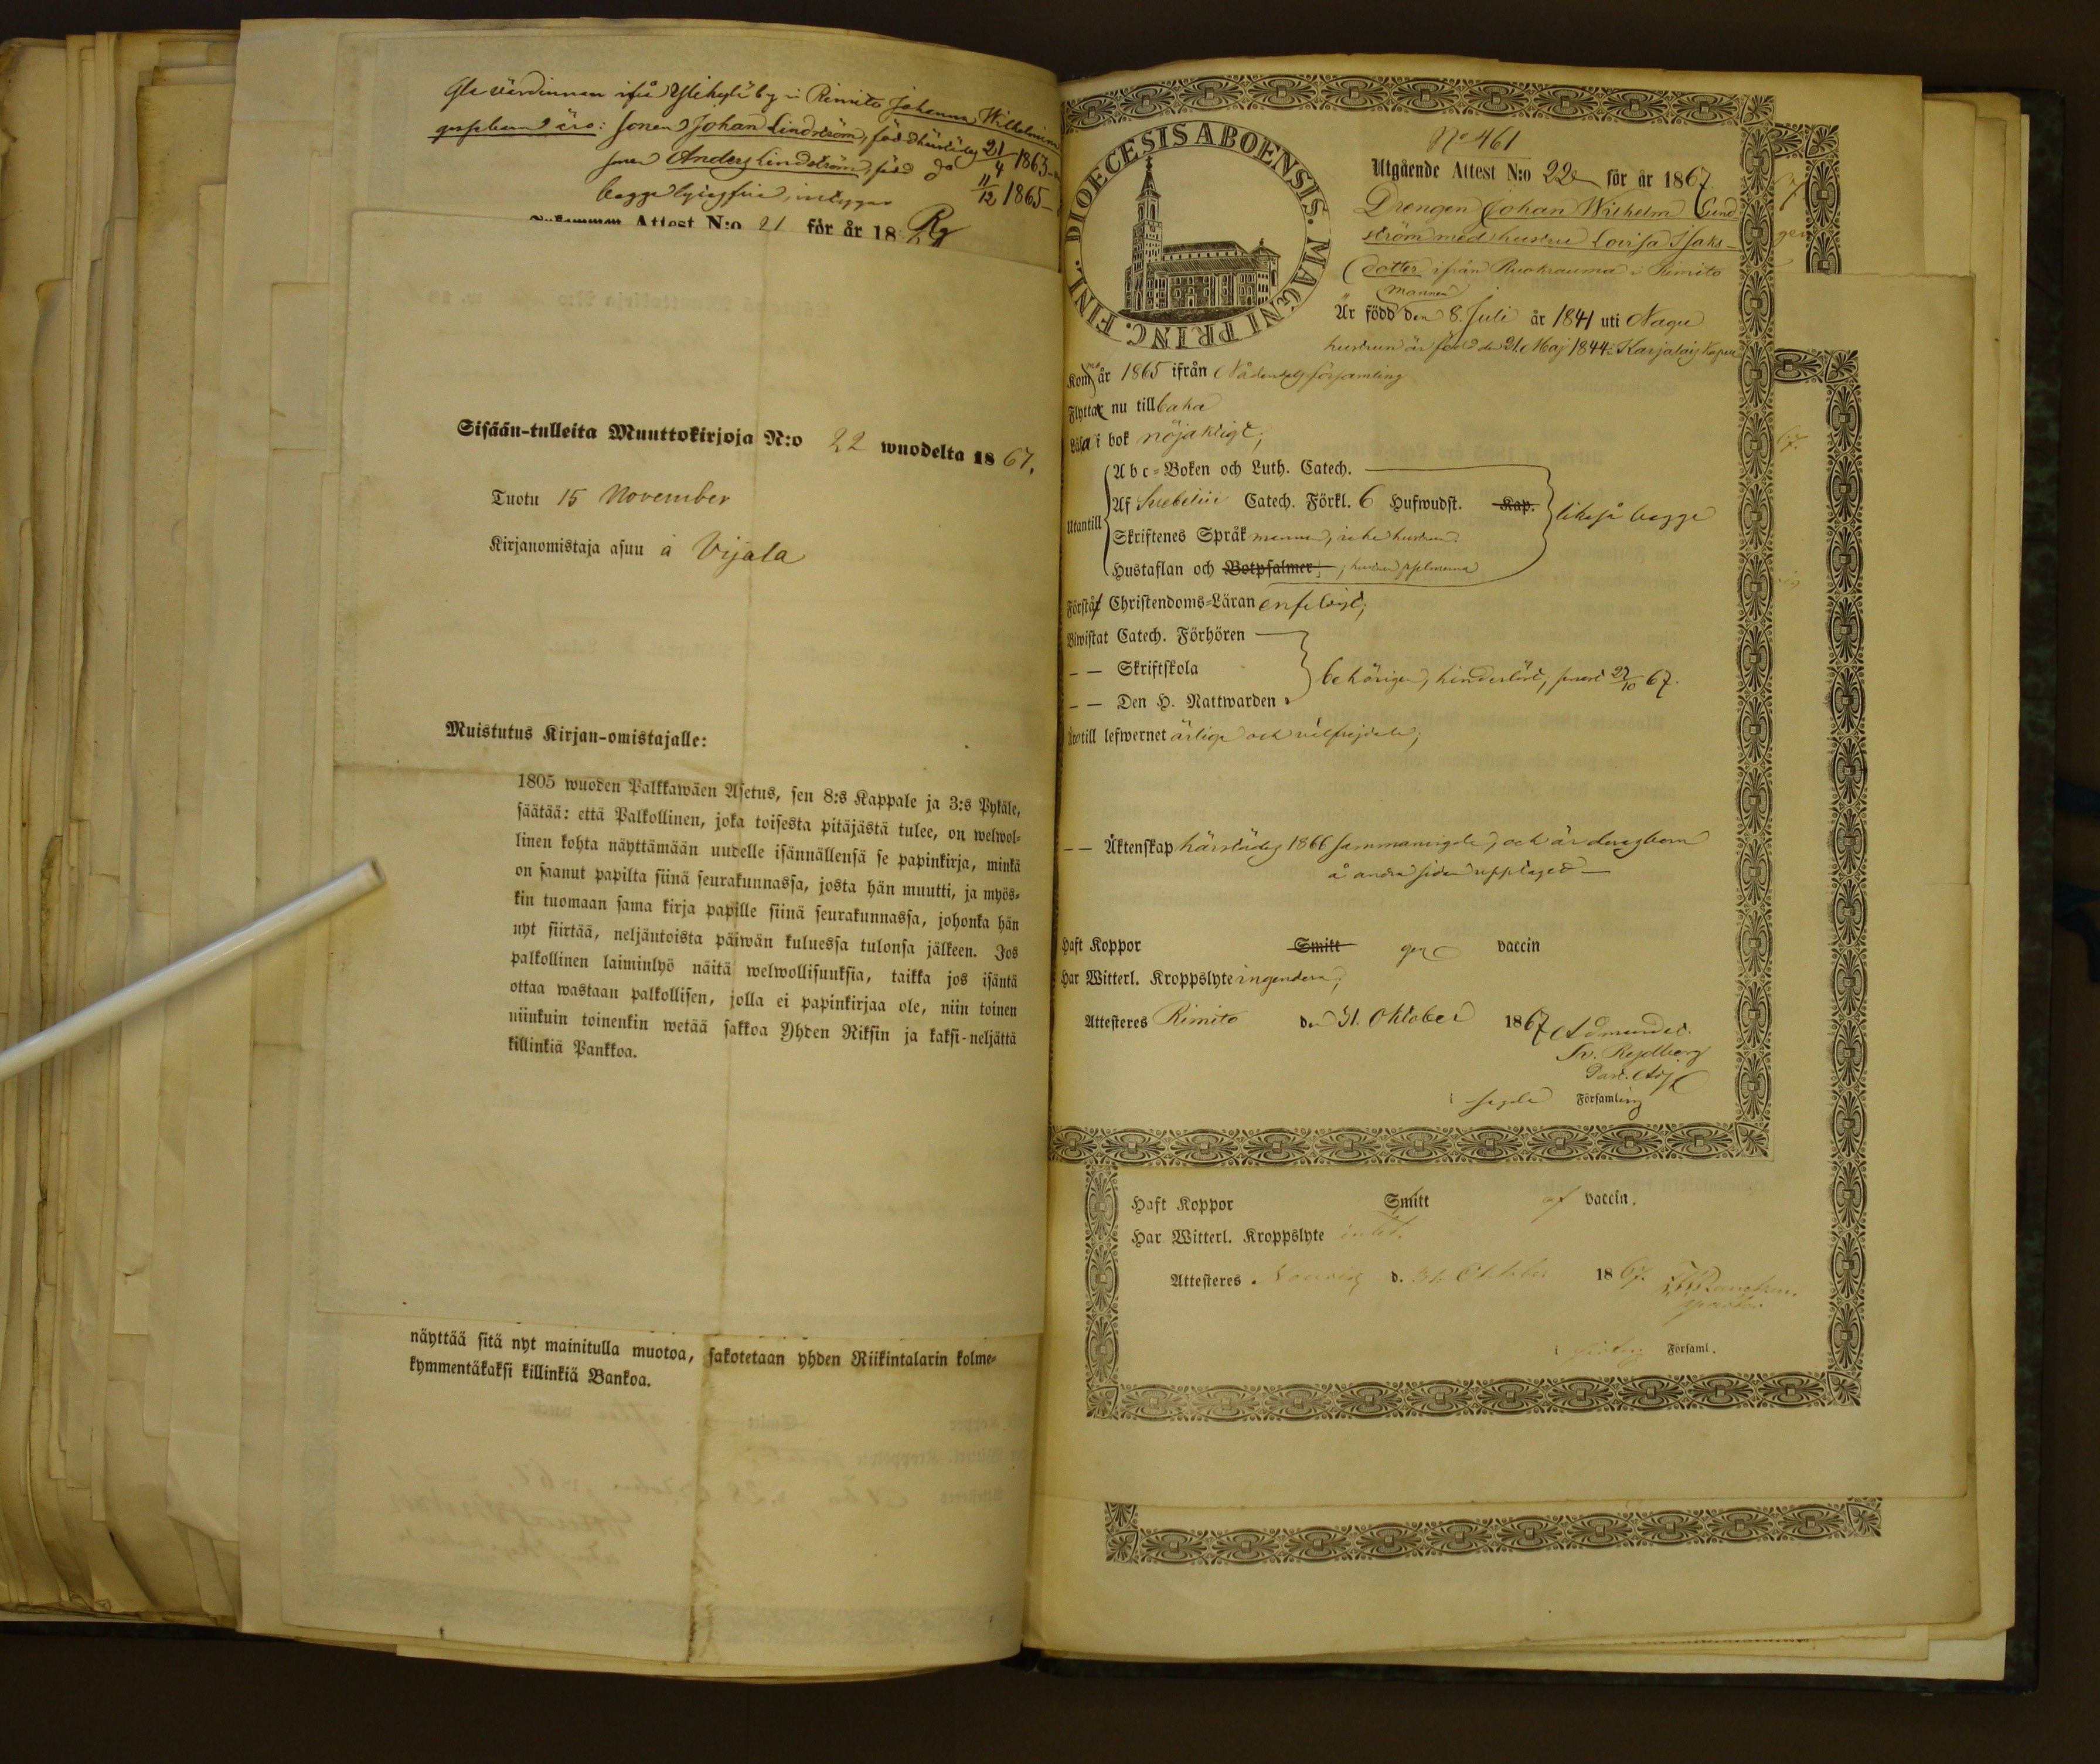 Rimito Johanna Wilhelmin
äro: sonen Johan Lindström, född 21/4 1863
sonen Anders Lindström, född do 11/12 1865
begge
Attest N:o 21 för år 18
Sisään-tulleita Muuttokirjoja N:o 22 wuodelta 1867.
Tuotu 15 November
Kirjanomistaja asuu å Vijala
Muistutus Kirjan-omistajalle:
1805 wuoden Palkkawäen Asetus, sen 8:s Kappale ja 3:s Pykäle,
säätää: että Palkollinen, joka toisesta pitäjästä tulee, on welwol-
linen kohta näyttämään uudelle isännällensä se papinkirja, minkä
on saanut papilta siinä seurakunnassa, josta hän muutti, ja myös-
kin tuomaan sama kirja papille siinä seurakunnassa, johonka hän
nyt siirtää, neljäntoista päiwän kuluessa tulonsa jälkeen. Jos
palkollinen laiminlyö näitä welwollisuuksia, taikka jos isäntä
ottaa wastaan palkollisen, jolla ei papinkirjaa ole, niin toinen
niinkuin toinenkin wetää sakkoa Yhden Riksin ja kaksi-neljättä
killinkiä Pankkoa.
näyttää sitä nyt mainitulla muotoa, sakotetaan yhden Riikintalarin kolme-
kymmentäkaksi killinkiä Bankoa.
DIOECESIS ABOENSIS. MAGNI PRINC. FINL.
No 461
Utgående Attest N:o 22 för år 1867
Drengen Johan Wilhelm Lind
ström med hustru Lovisa Isaks-
dotter ifrån Ruokrauma i Rimito
mannen
Är född den 8. Juli år 1841 uti Nagu
hustrun är född den 21. Maj 1844 i Karjalais Kapell
Kom år 1865 ifrån Nådendals församling
Flytta nu tillbaka
Läsa i bok nöjaktigt;
Utantill
Abc-Boken och Luth. Catech.
Af Svebelii Catech. Förkl. 6 Hufwudst. Kap.
likaså begge
Skriftenes Språk mannen, icke hustrun.
Hustaflan och Botpsalmer; hustrun psalmerna
Förstå Christendoms-Läran enfaldigt;
Biwistat Catech. Förhören
— — Skriftskola
behörigen, hinderlöst, senast 27/10 67.
— — Den H. Nattwarden
till lefwernet ärliga och välfrejdade;
— — Äktenskap härstädes 1866 sammanvigde, och är deras barn
å andra sidan upptaget —
Haft Koppor Smitt gen vaccin
Har Witterl. Kroppslyte ingendera;
Attesteres Rimito den 31. Oktober 1867
i sagde Församling
Haft Koppor Smitt af vaccin.
Har Witterl. Kroppslyte intet.
Attesteres Nousis d. 31. Oktober 1867.
i Församl.